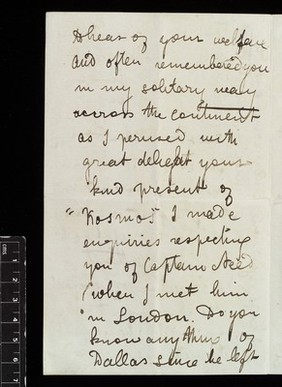 to hear of your welfare
and often remembered you
in my solitary way
across the continent
as I perused with
great delight your
kind present of
"Kosmos" I made
enquiries respecting
you of Captain
when I met him
in London. Do you
know any thing of
Dallas since he left